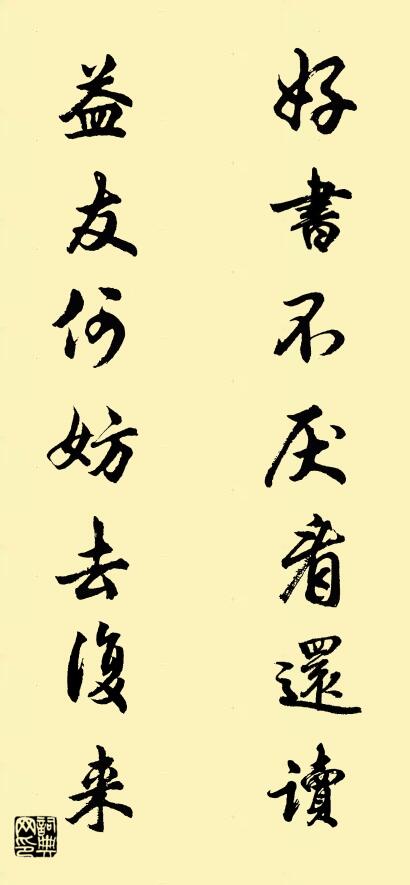 好書不厌看還讀
益友何妨去復来
詞典网印